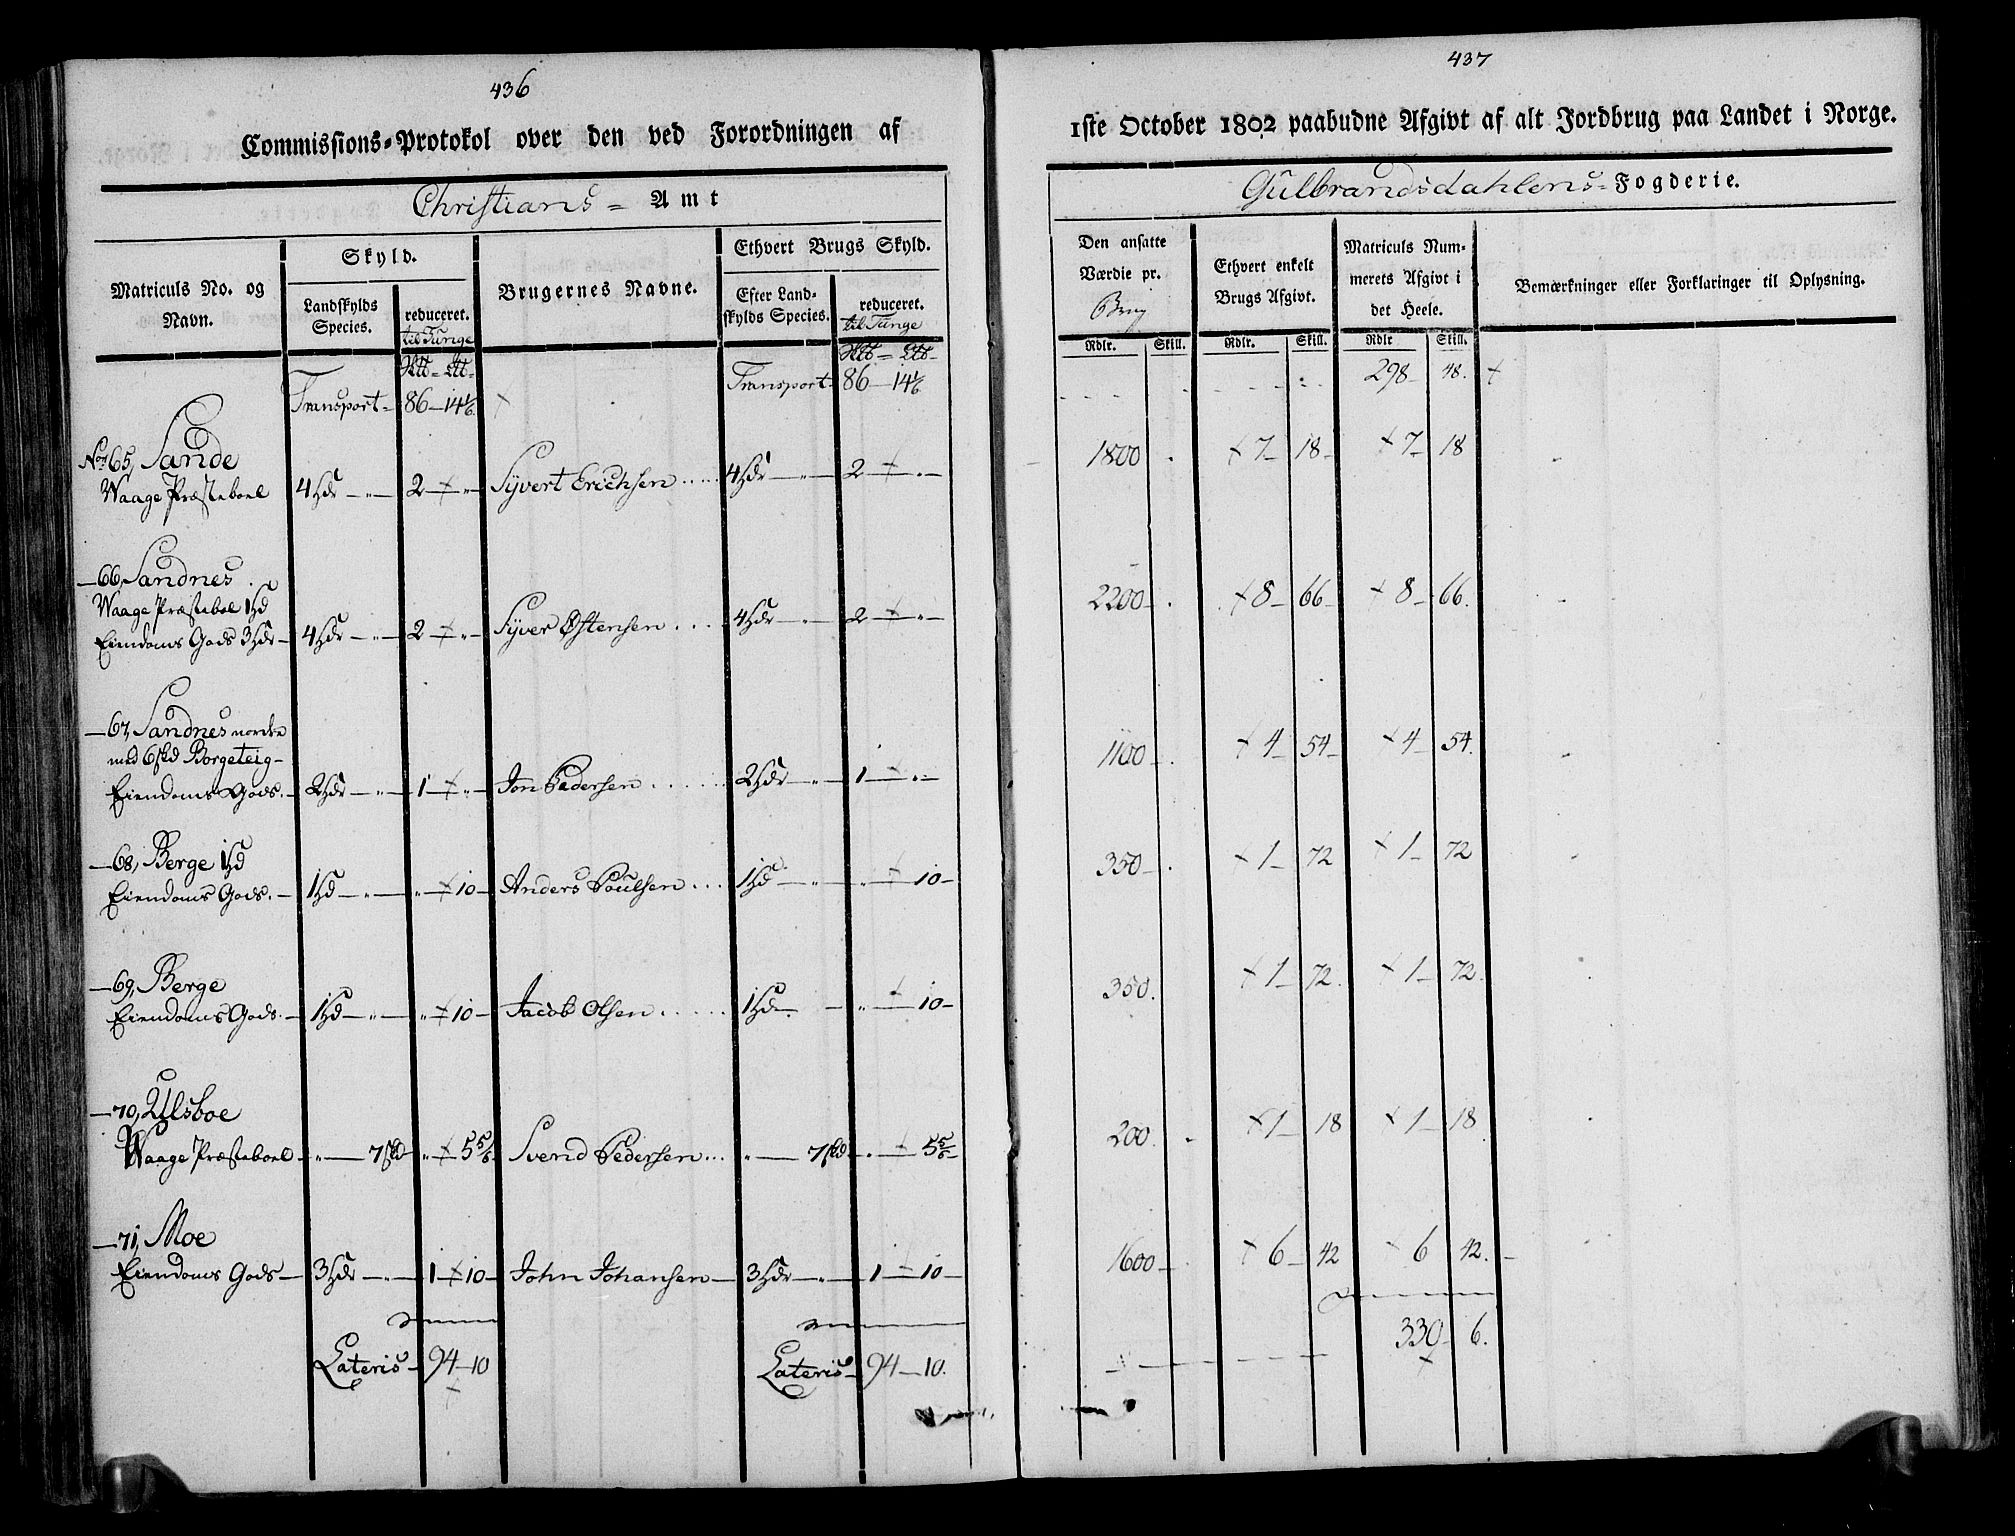 436
Commissions-Protokol over den ved Forordningen af
Christians- Amt
Matriculs No. og Navn.
Skyld.
Landskylds Species.
reduceret. til Tunge
Brugernes Navne.
Ethvert Brugs Skyld.
Efter Landskylds Species.
reduceret. til Tunge
Transport- 86-14 1/6 Transport- 86-14 1/6
No 65, Sande
Waage Præsteboel 4 Hdr - " - 2 - " - Syvert Erichsen ..... 4 Hdr - " - 2 - " -
- 66, Sandnes
Waage Præstebol 1 Hd
Eiendoms Gods 3 Hdr - 4 Hdr - " - 2 - " - Syver Østensen .... 4 Hdr - " - 2 - " -
- 67, Sandnes nordre
med 6 skd Borgeteig-
Eiendoms Gods. - 2 Hdr - " - 1 - " - Jon Pedersen ...... 2 Hdr - " - 1 - " -
- 68, Berge 1 Hd
Eiendoms Gods. - 1 Hd - " - " - 10 - Anders Poulsen ... 1 Hd - " - " - 10 -
- 69, Berge
Eiendoms Gods. - 1 Hd - " - " - 10 - Jacob Olsen ...... 1 Hd - " - 10 -
- 70, Ulsboe
Waage Præsteboel - " - 7 skd " - 5 5/6 - Svend Pedersen ... " - 7 skd - " - 5 5/6 -
- 71, Moe
Eiendoms Gods - 3 Hdr - " - 1 - 10 - John Johansen - 3 Hdr - " - 1 - 10 -
Lateris - 94 - 10 Lateris - 94 - 10.
437
1ste October 1802 paabudne Afgivt af alt Jordbrug paa Landet i Norge.
Gulbrandsdahlens- Fogderie.
Den ansatte Værdie pr. Brug
Ethvert enkelt Brugs Afgivt.
Matriculs Nummerets Afgivt i det Heele.
Bemærkninger eller Forklaringer til Oplysning.
Rdlr. Skill. Rdlr. Skill. Rdlr Skill.
298- 48.
1800 7- 18- 7- 18
2200- 8- 66- 8- 66.
1100- 4- 54- 4- 54.
350- 1- 72 1- 72
350. 1- 72. 1- 72.
200. 1- 18 1- 18
1600- 6- 42 6 42.
330- 6.